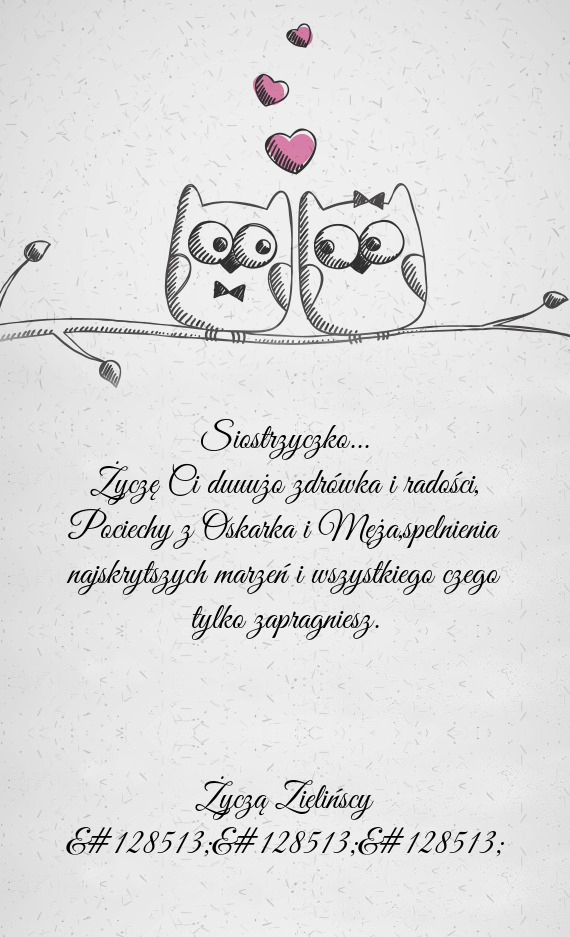 Siostrzyczko...
Życzę Ci duuużo zdrówka i radości,
Pociechy z Oskarka i Męża,spelnienia
najskrytszych marzeń i wszystkiego czego
tylko zapragniesz.
Życzą Zielińscy
&#128513;&#128513;&#128513;